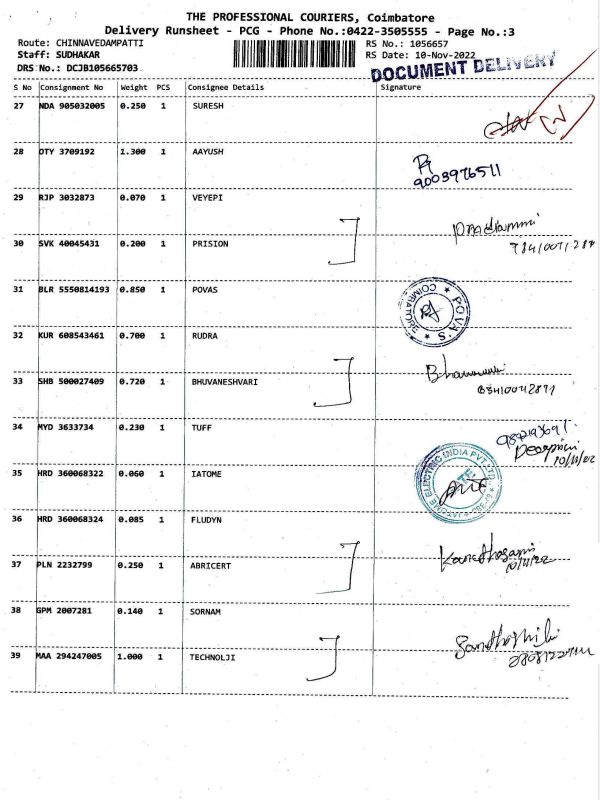 THE PROFESSIONAL COURIERS, Coimbatore
Delivery Runsheet - PCG - Phone No.:0422-3505555 - Page No.:3
Route: CHINNAVEDAMPATTI RS No.: 1056657
Staff: SUDHAKAR RS Date: 10-Nov-2022
DRS No.: DCJB105665703
DOCUMENT DELIVERY
S No Consignment No Weight PCS Consignee Details Signature
27 NDA 905032005 0.250 1 SURESH
28 OTY 3709192 1.300 1 AAYUSH
9003976511
29 RJP 3032873 0.070 1 VEYEPI
30 SVK 40045431 0.200 1 PRISION
31 BLR 5550814193 0.850 1 POVAS
POVA'S COIMBATORE
32 KUR 608543461 0.700 1 RUDRA
33 SHB 500027409 0.720 1 BHUVANESHVARI
34 MYD 3633734 0.230 1 TUFF
35 HRD 360068322 0.060 1 IATOME
IATOME ELECTRIC INDIA PVT LTD
36 HRD 360068324 0.085 1 FLUDYN
37 PLN 2232799 0.250 1 ABRICERT
38 GPM 2007281 0.140 1 SORNAM
39 MAA 294247005 1.000 1 TECHNOLJI